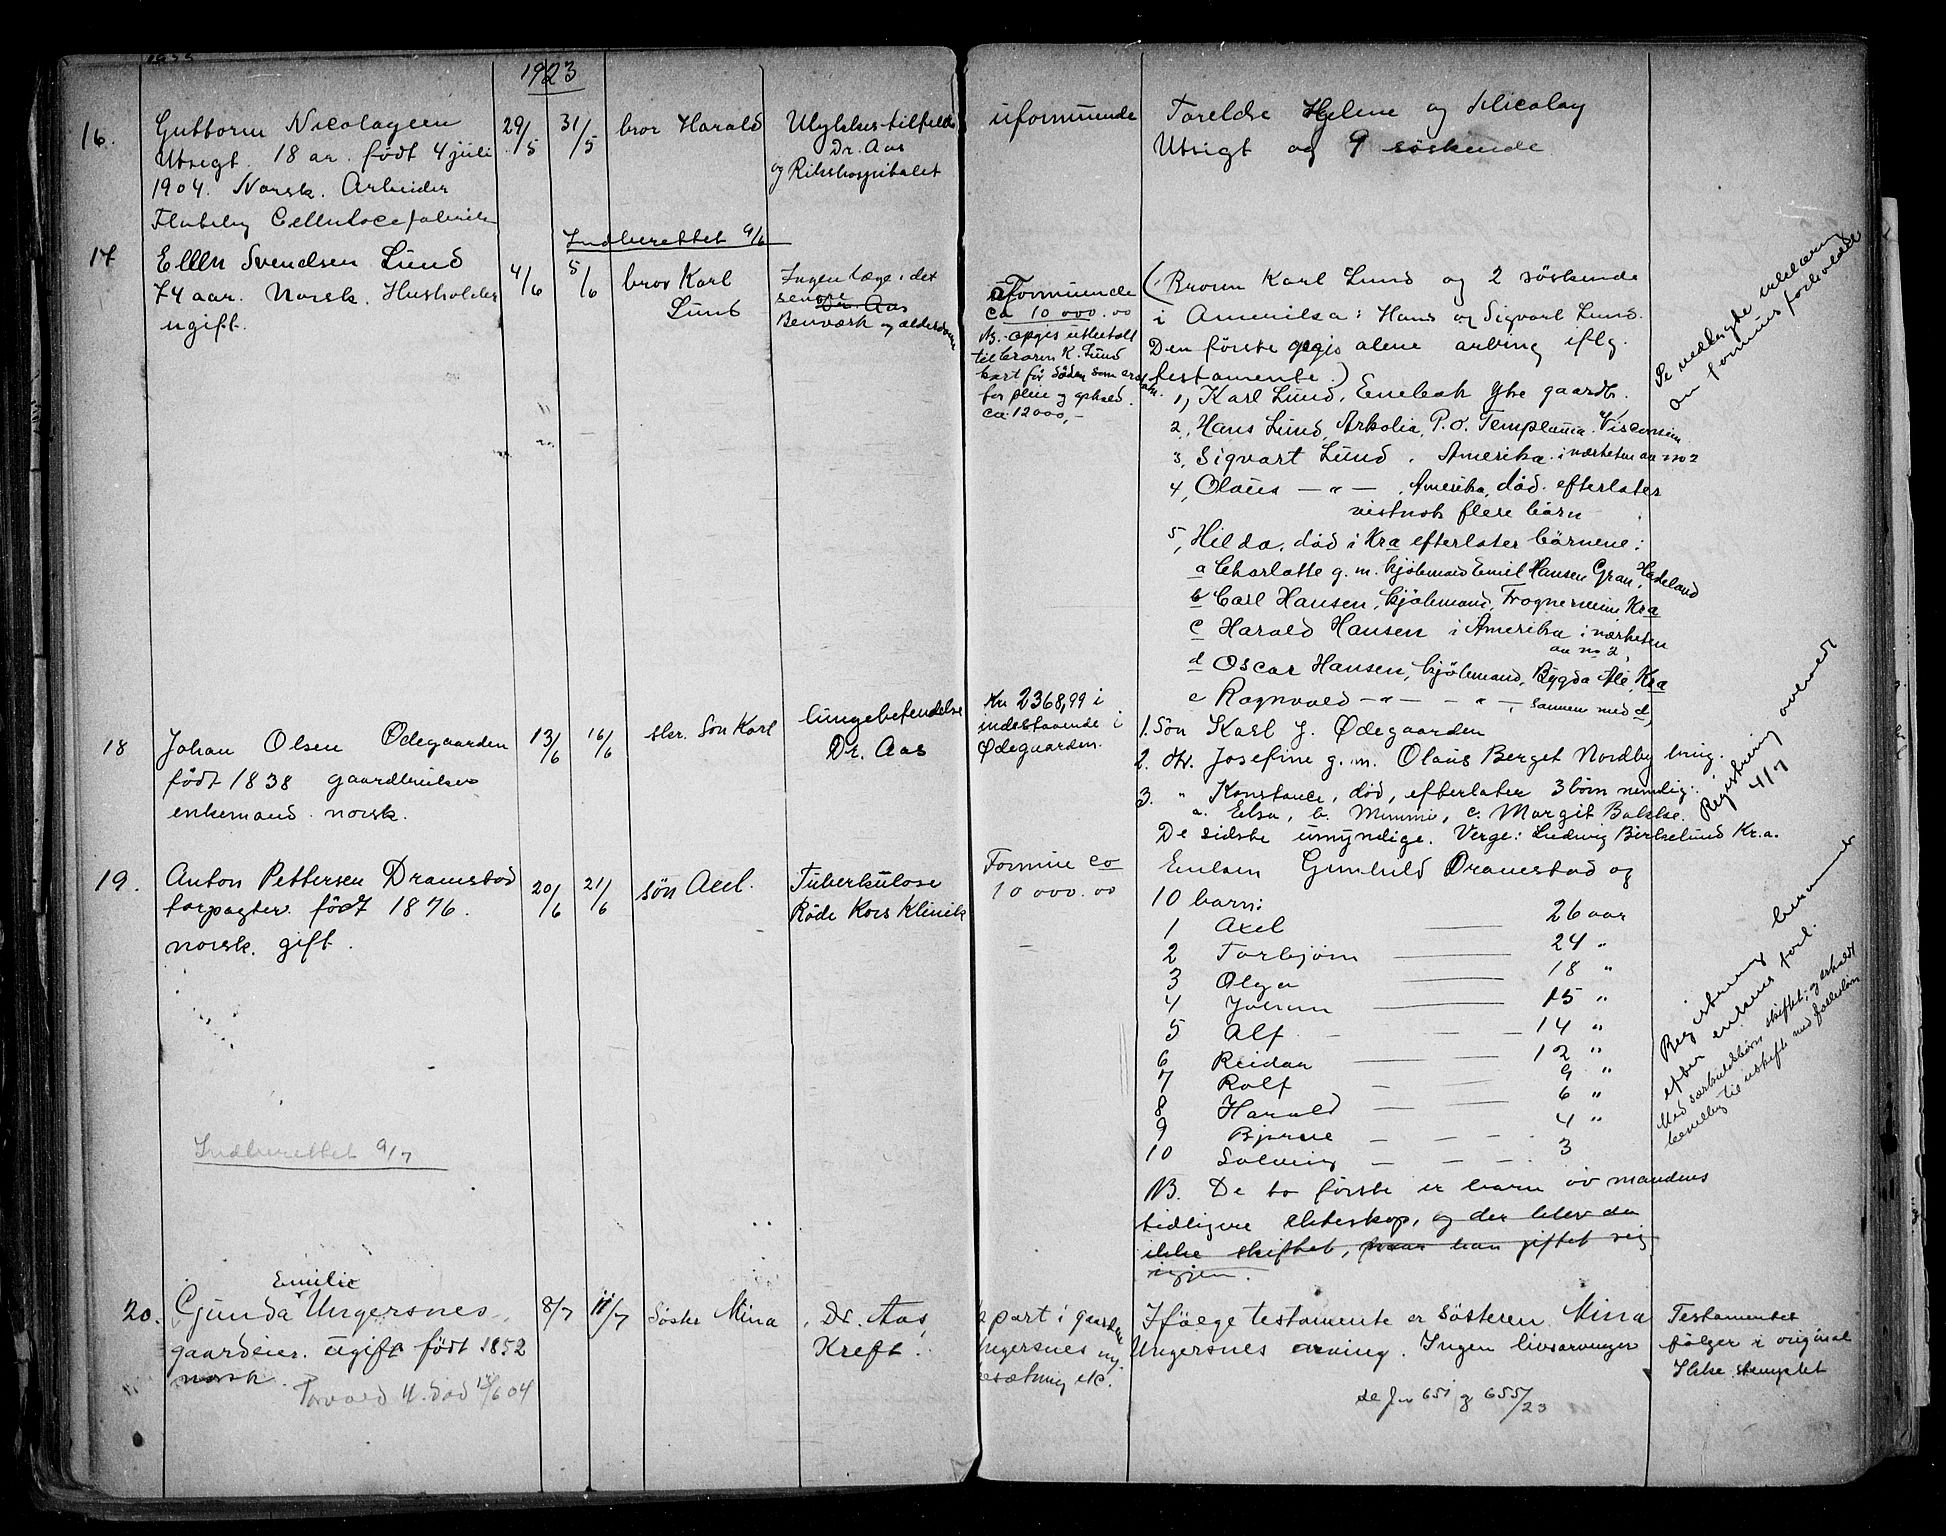 1923
16. Guttorm Nicolaysen 29/5 31/5 bror Harald Ulykkestilfelde uformuende Foreldre Helene og Nicolay
Utsigt. 18 ar. født 4 juli Dr. Aas Utsigt og 9 søskende
1904. Norsk. Arbeider og Rikshospitalet
Flateby Cellulosefabrik
Indberettet 9/6
17 Ellen Svendsen Lund 4/6 5/6 bror Karl Ingen læge i det (Broren Karl Lund og 2 söskende
74 aar. Norsk. Husholder Lund senere Dr. Aas
ugift. Benværk og alderdom
uformuende
ca 10 000.00
NB. opgis utbetalt
til broren K. Lund
kort før døden som
for pleie og ophold.
ca. 12000,-
i Amerika: Hans og Sigvart Lund.
Den første opgis alene arving iflg.
testamente.)
1, Karl Lund, Enebak Ytre gaardbr.
2, Hans Lund, Arkolia, P.O. Visconsin
3, Sigvart Lund, Amerika i nærheten av no 2
4, Olaus — " — , Amerika, død. efterlater
vistnok flere børn
5, Hilda, død i Kra efterlater børnene:
a Charlotte g. m. kjøbmand Emil Hansen Gran, Hadeland
b Carl Hansen, kjøbmand, Frognerveien Kra
c Harald Hansen i Amerika i nærheten
av no 2,
d Oscar Hansen, kjøbmand, Bygdø Alle, Kra
e Ragnvald — " — — " —, sammen med d,
Se vedlagte erklæring
om formuesforholdene
18 Johan Olsen Ødegaarden 13/6 16/6 Søn Karl lungebetendelse
født 1838 gaardbruker Dr. Aas
enkemand. norsk.
Kr. 2368,99 i
indestaaende i
Ødegaarden.
1. Søn Karl J. Ødegaarden
2. dtr. Josefine g. m. Olaus Berget Nordby brug.
3. " Konstance, død, efterlater 3 børn nemlig:
a. Elsa, b. Mimmi, c. Margit Bakke.
De sidste umyndige. Verge: Ludvig Birkelund Kr.a.
Registrering
4/7
19. Anton Pettersen Dramstad 20/6 21/6 søn Axel. Tuberkulose Formue ca Enken Gunhild Dramstad og
forpagter. født 1876. Røde Kors Klinik 10 000.00 10 barn:
norsk. gift.
1 Axel — 26 aar
2 Torbjørn — 24 "
3 Olga — 18 "
4 Johan — 15 "
5 Alf — 14 "
6 Reidar — 12 "
7 Rolf — 9 "
8 Harald — 6 "
9 Bjarne — 4 "
10 Solveig — 3
NB. De to første er barn av mandens
tidligere ekteskap, og der blev da
ikke skiftet, han giftet sig
igjen.
Registrering
efter enkens forl.
Med særkuldsbørn skiftet, og erholdt
bevilling til uskifte med fællesbørn
Indberettet 9/7
20. Gunda Emilie Ungersnes 8/7 11/7 Søster Mina Dr. Aas part i gaarden Ifølge testamente er søsteren Mina Testamentet
gaardeier. ugift født 1852 Kreft. Ungersnes Ungersnes arving. Ingen livsarvinger følger i original
norsk. besætning etc. Ikke stemplet
Torvald U. død 04
se Jnr 651 og 655/23